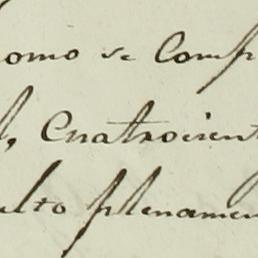 como se Comp
l, Cuatrocient
ulto plenamen